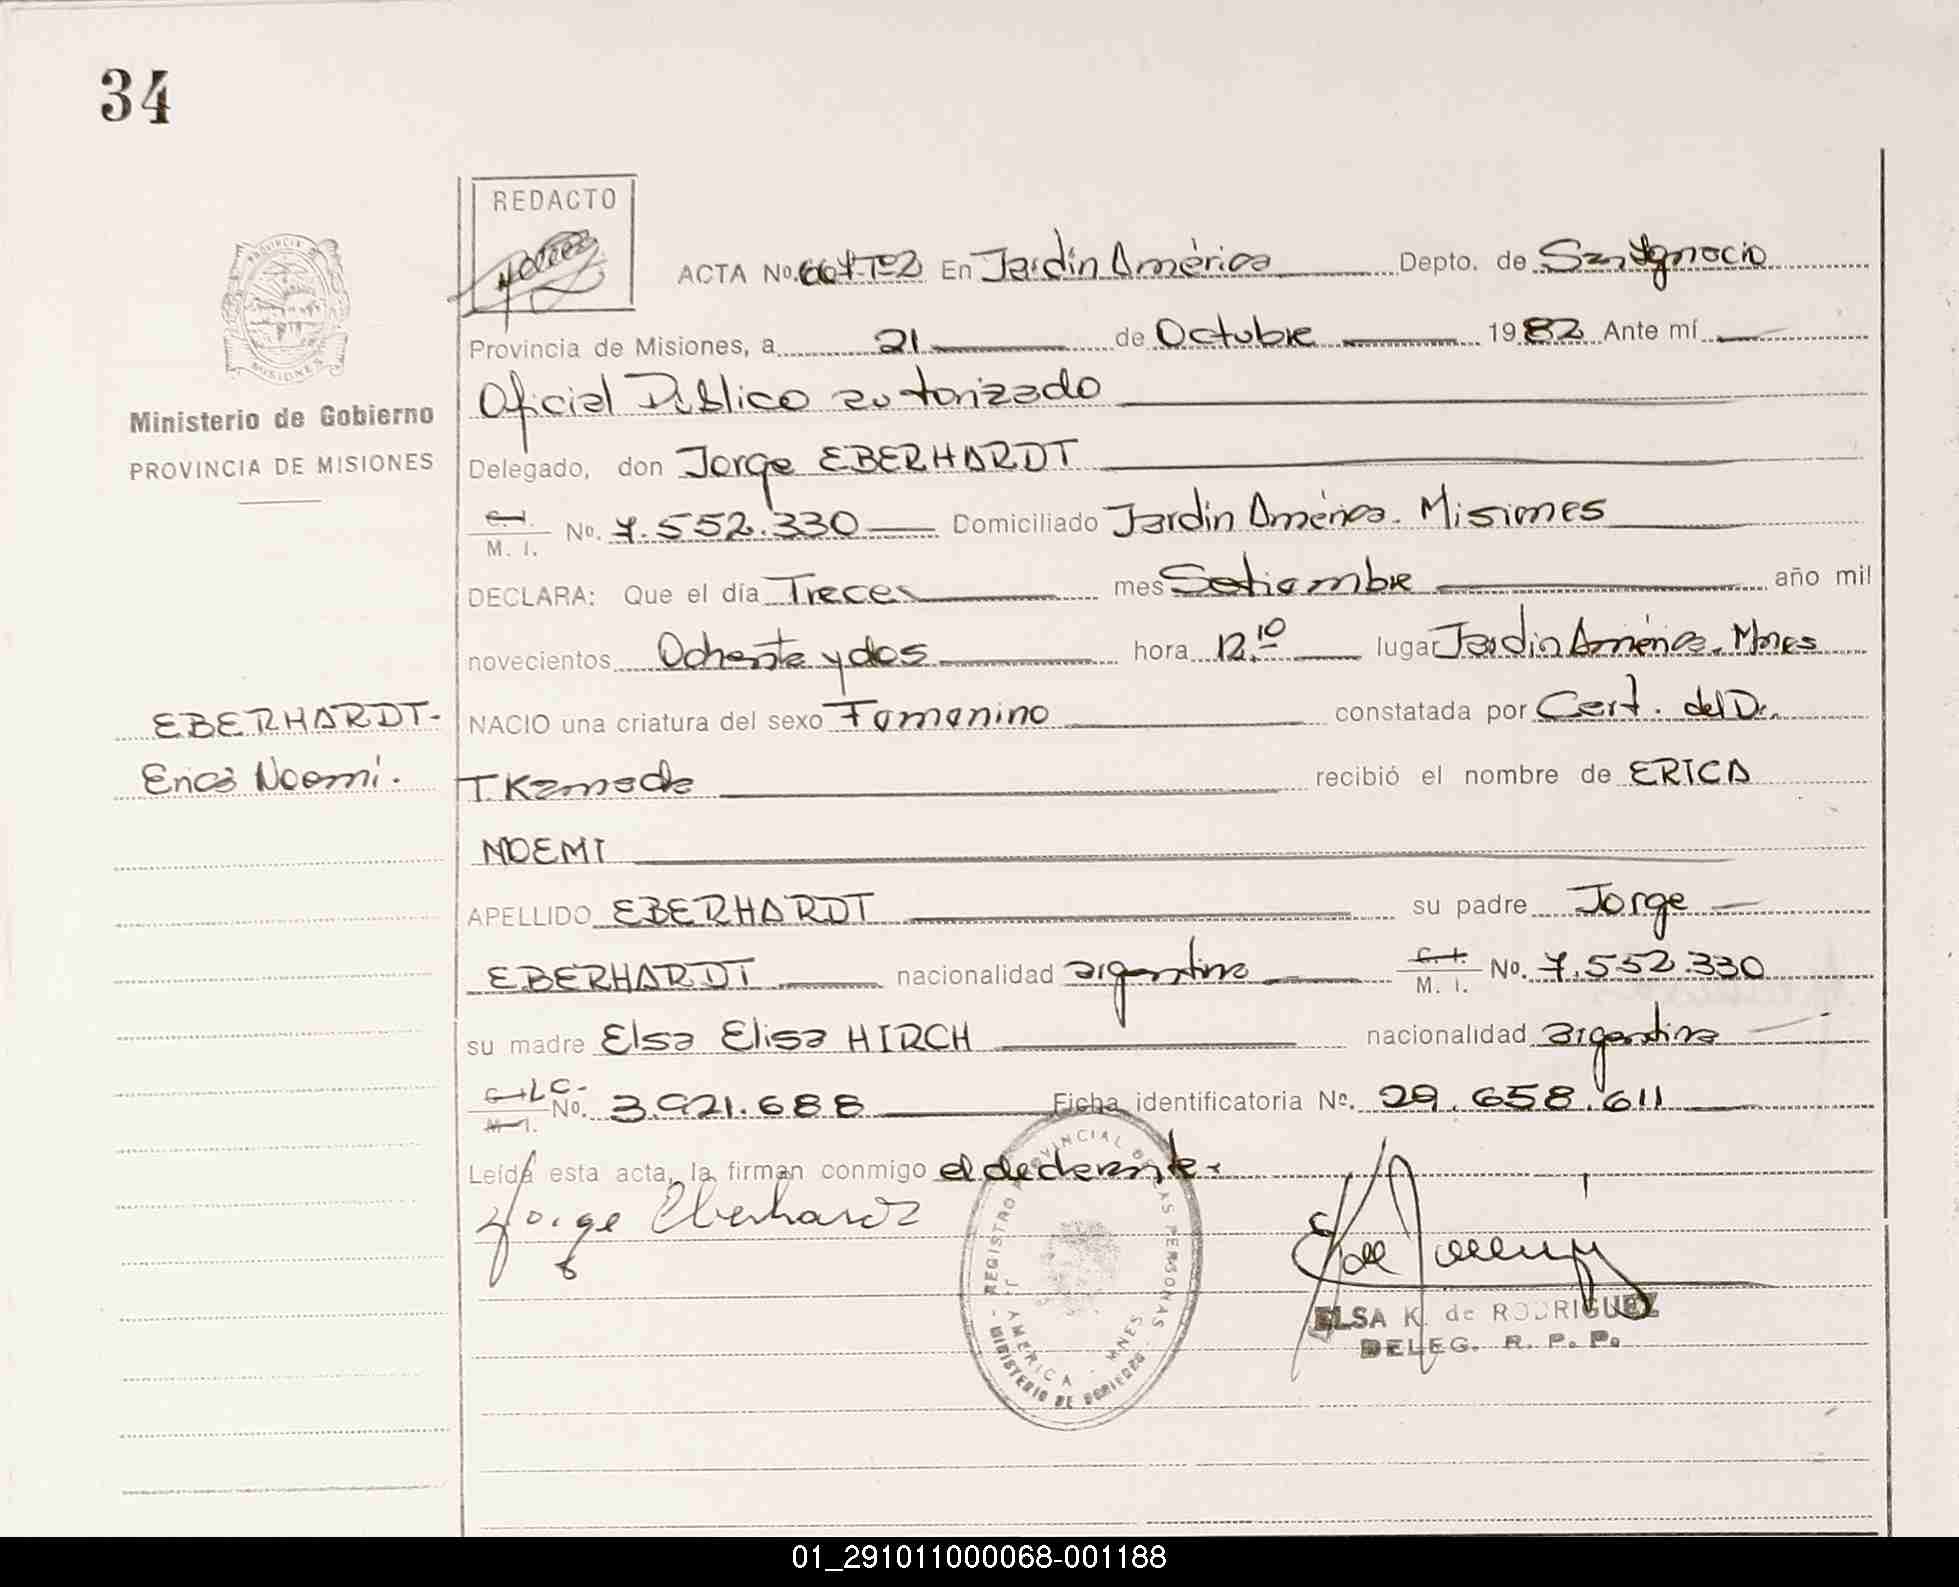 34
REDACTO
ACTA No. 667-Tº2 En Jardín América Depto. de San Ignacio
Provincia de Misiones, a 21 de Octubre 1982 Ante mí
Oficial Público autorizado
Delegado, don Jorge EBERHARDT
C. I.
M. I. No. 7.552.330 Domiciliado Jardín América. Misiones
DECLARA: Que el día Trece mes Setiembre año mil
novecientos Ochenta y dos hora 12.10 lugar Jardín América. Mnes
NACIO una criatura del sexo Femenino constatada por Cert. del Dr.
T Kamada recibió el nombre de ERICA
NOEMI
APELLIDO EBERHARDT su padre Jorge
EBERHARDT nacionalidad argentina C. I.
M. I. No. 7.552.330
su madre Elsa Elisa HIRCH nacionalidad argentina
C. I. LC.
M. I. No. 3.921.688 Ficha identificatoria Nº. 29.658.611
Leída esta acta, la firman conmigo el declarante
Jorge Eberhardt
ELSA K. de RODRIGUEZ
DELEG. R. P. P.
REGISTRO PROVINCIAL DE LAS PERSONAS
J. AMERICA - MNES
MINISTERIO DE GOBIERNO
PROVINCIA
MISIONES
Ministerio de Gobierno
PROVINCIA DE MISIONES
EBERHARDT-
Erica Noemí.
01_291011000068-001188